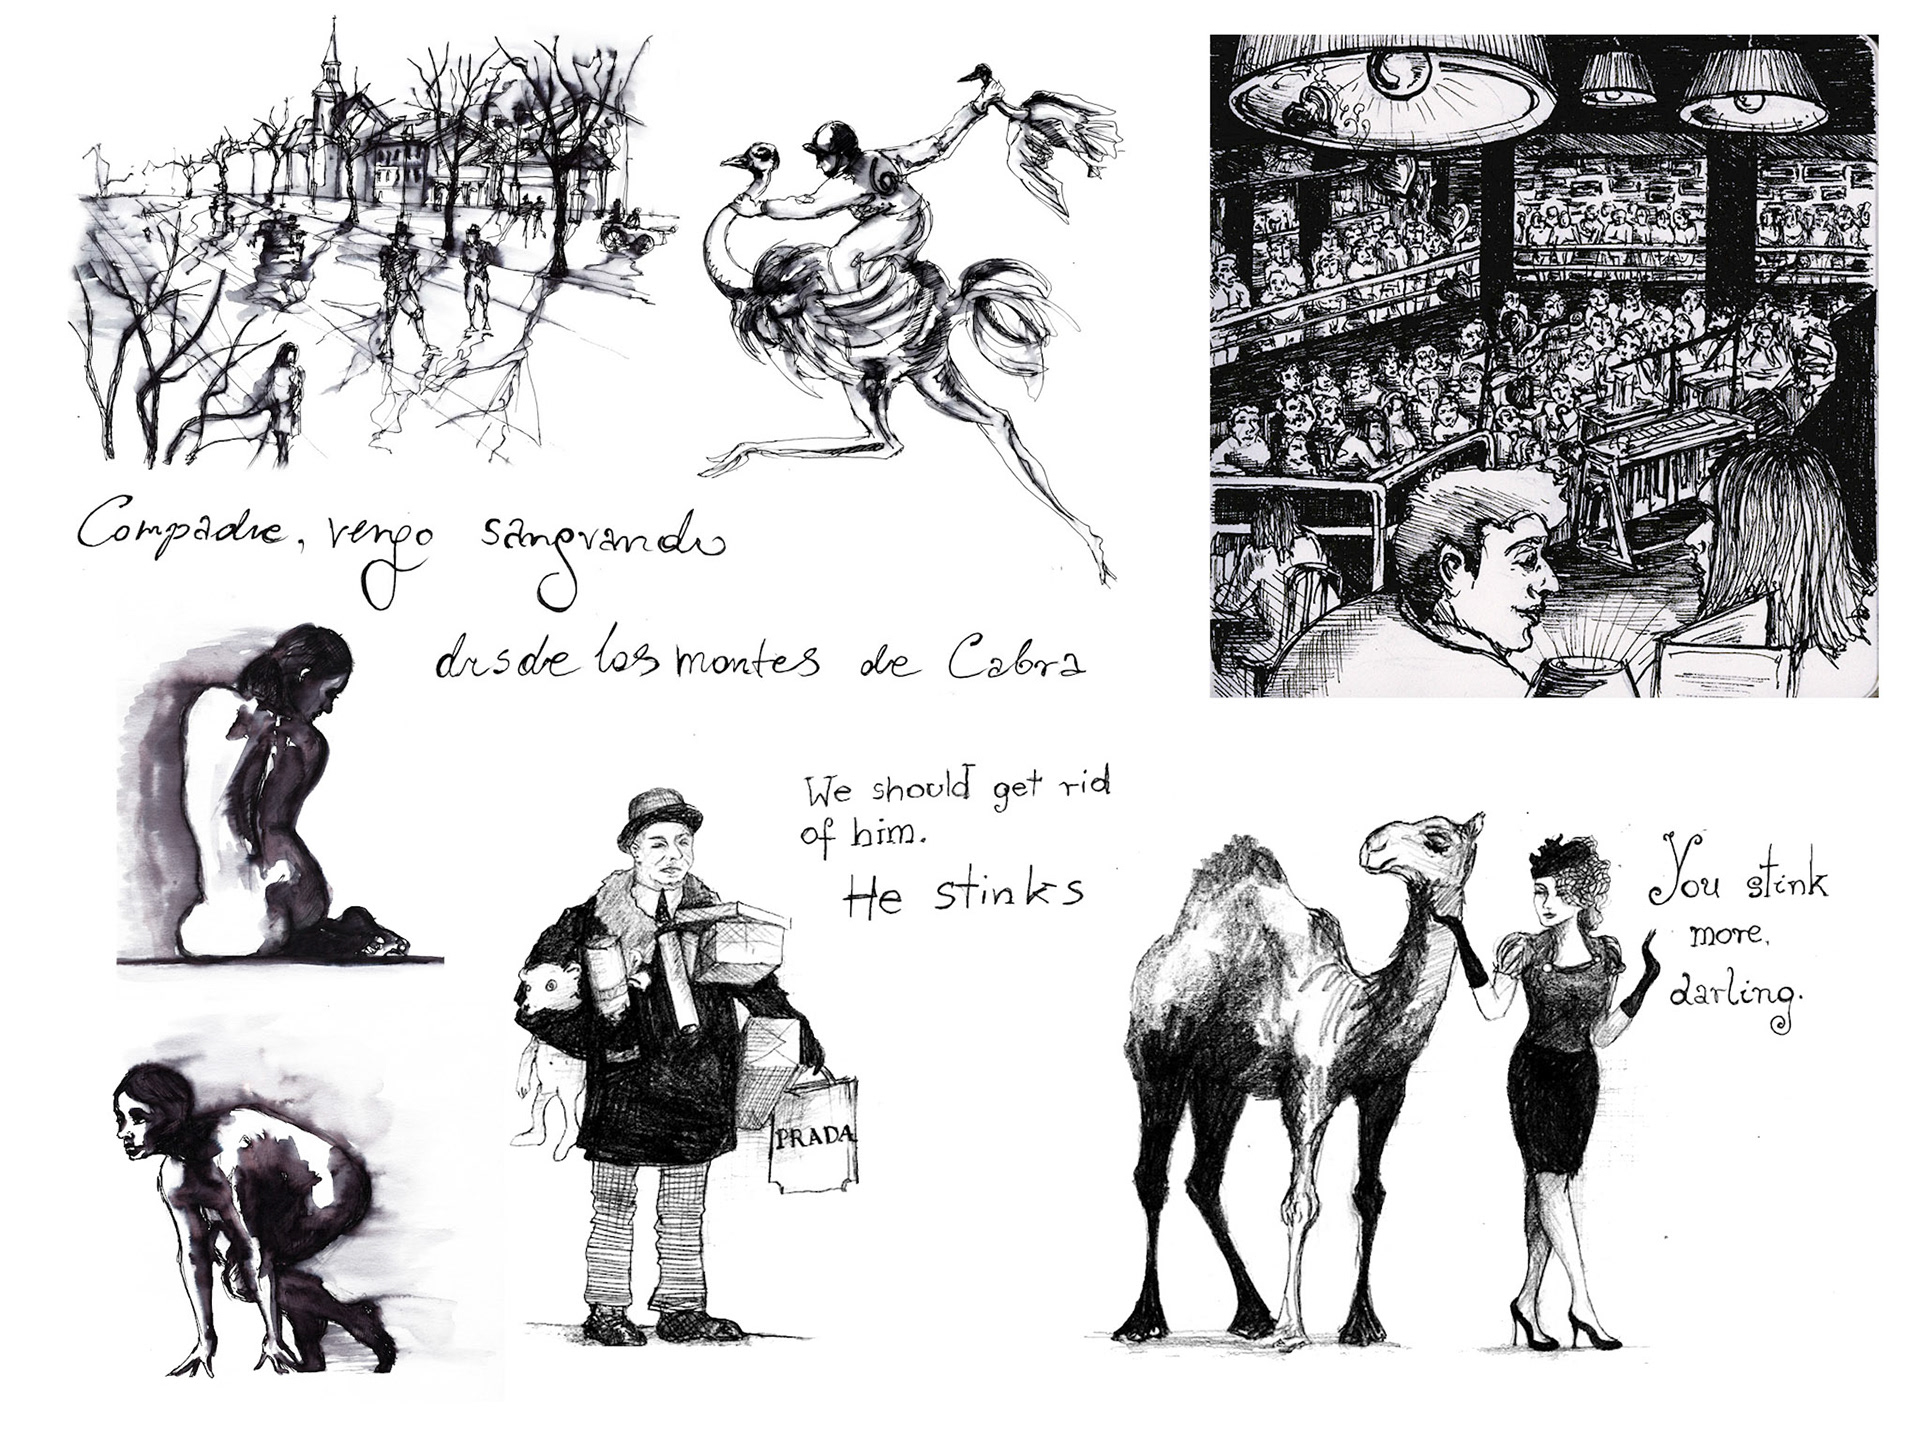 Compadre, vengo sangrando
desde los montes de Cabra
We should get rid
of him.
He stinks
You stink
more,
darling.
PRADA